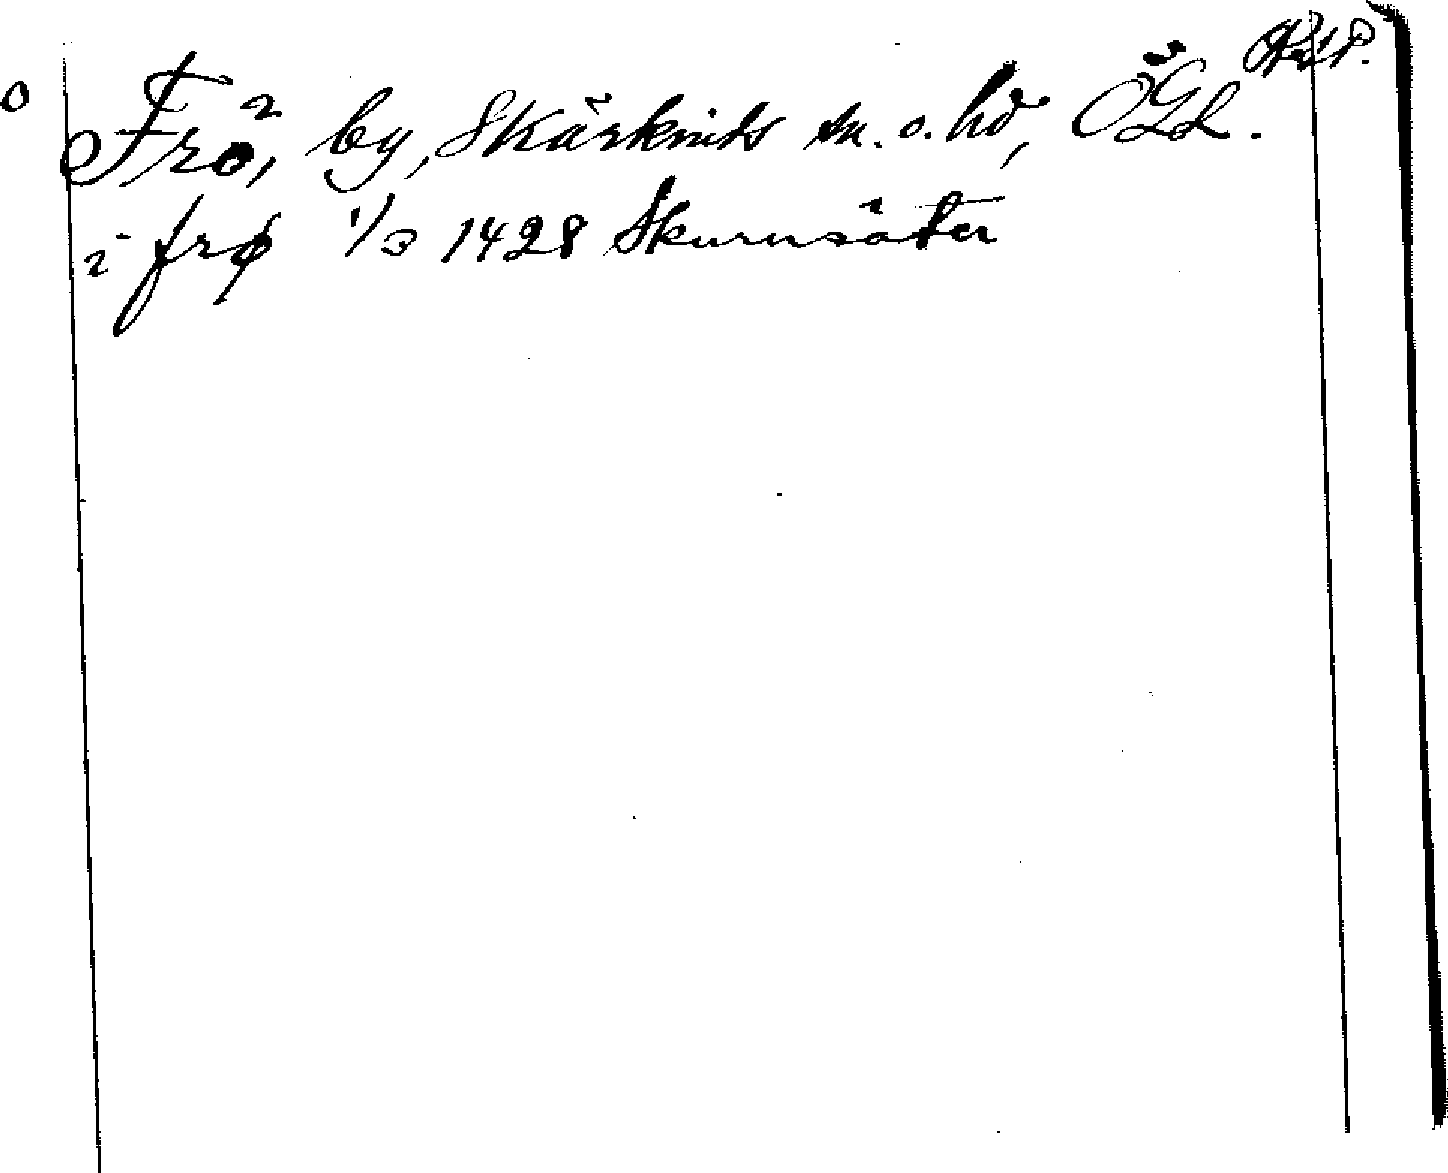 Frö, by, Skärkinds sn. o. hd, ÖGL.
i frø 1/3 1428 Skurusäter